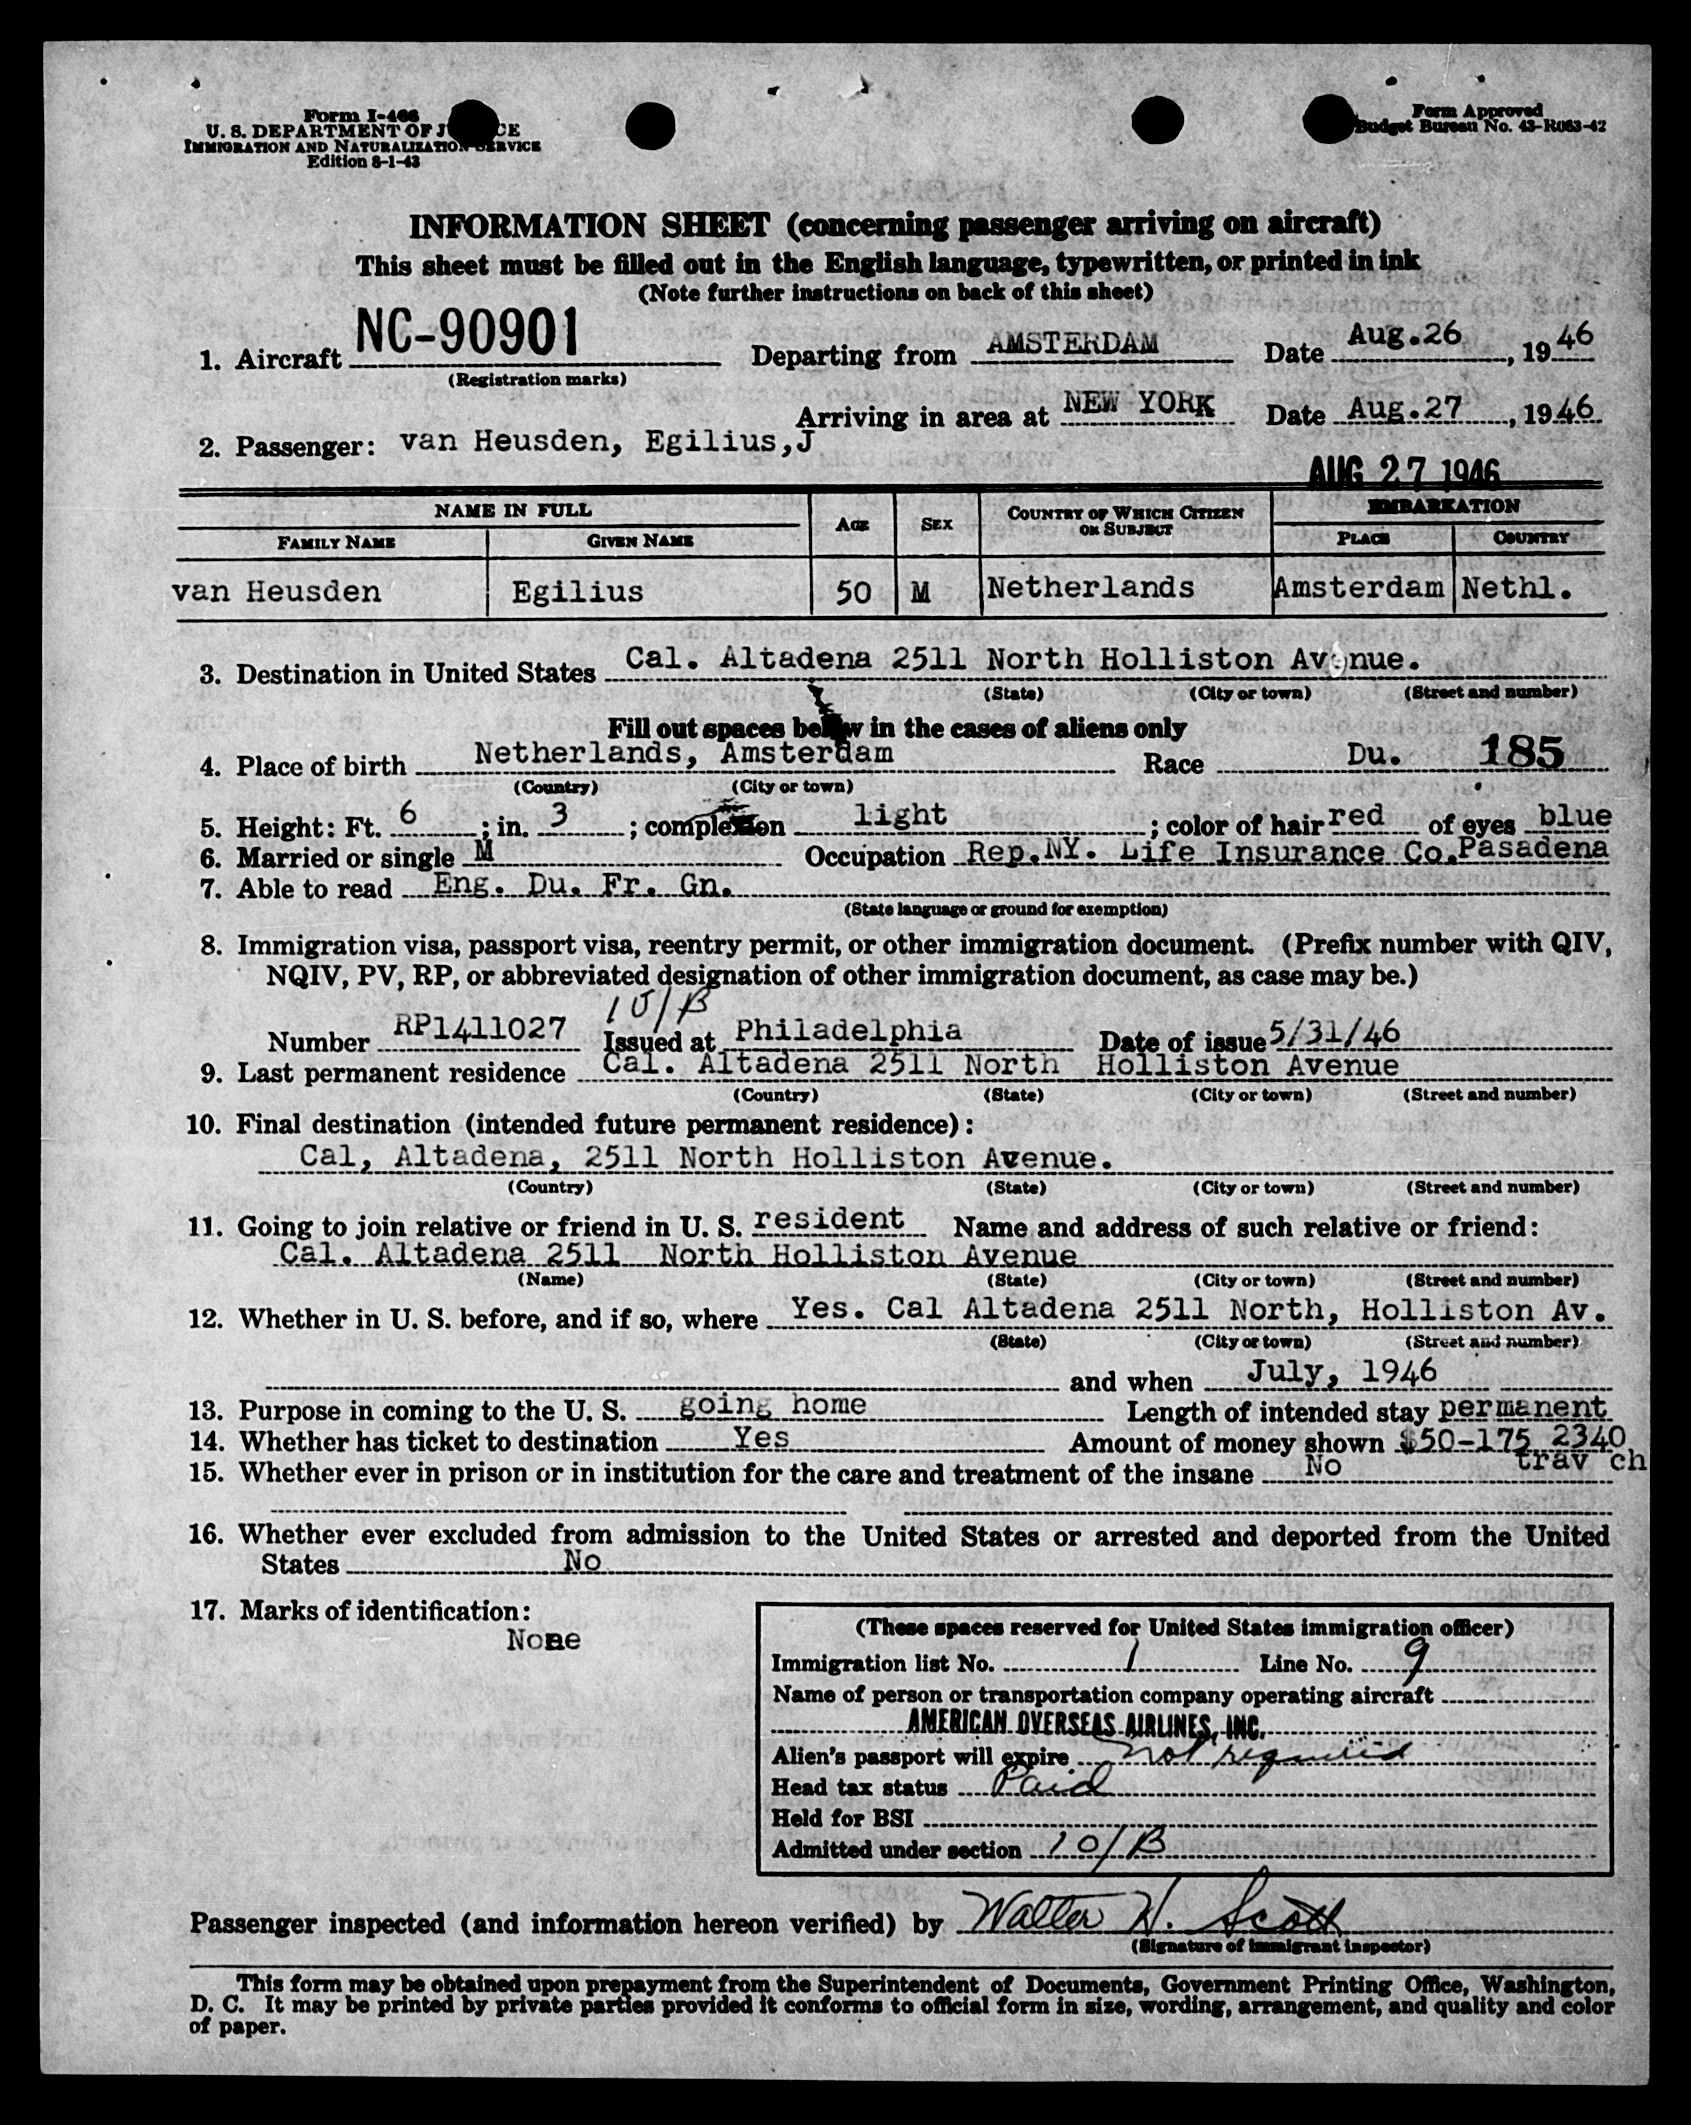 Form I-466
U. S. DEPARTMENT OF J CE
IMMIGRATION AND NATURALIZATION SERVICE
Edition 8-1-43
Form Approved
Budget Bureau No. 43-R063-42
INFORMATION SHEET (concerning passenger arriving on aircraft)
This sheet must be filled out in the English language, typewritten, or printed in ink
(Note further instructions on back of this sheet)
1. Aircraft NC-90901 Departing from AMSTERDAM Date Aug.26, 1946
(Registration marks)
Arriving in area at NEW YORK Date Aug.27, 1946.
2. Passenger: van Heusden, Egilius,J
AUG 27 1946
NAME IN FULL AGE SEX COUNTRY OF WHICH CITIZEN OR SUBJECT EMBARKATION
FAMILY NAME GIVEN NAME PLACE COUNTRY
van Heusden Egilius 50 M Netherlands Amsterdam Nethl.
3. Destination in United States Cal. Altadena 2511 North Holliston Avenue.
(State) (City or town) (Street and number)
Fill out spaces below in the cases of aliens only
4. Place of birth Netherlands, Amsterdam Race Du. 185
(Country) (City or town)
5. Height: Ft. 6; in. 3; complexion light; color of hair red of eyes blue
6. Married or single M Occupation Rep.NY. Life Insurance Co.Pasadena
7. Able to read Eng. Du. Fr. Gn.
(State language or ground for exemption)
8. Immigration visa, passport visa, reentry permit, or other immigration document. (Prefix number with QIV,
NQIV, PV, RP, or abbreviated designation of other immigration document, as case may be.)
10/B
Number RP1411027 Issued at Philadelphia Date of issue 5/31/46
9. Last permanent residence Cal. Altadena 2511 North Holliston Avenue
(Country) (State) (City or town) (Street and number)
10. Final destination (intended future permanent residence):
Cal, Altadena, 2511 North Holliston Avenue.
(Country) (State) (City or town) (Street and number)
11. Going to join relative or friend in U. S. resident Name and address of such relative or friend:
Cal. Altadena 2511 North Holliston Avenue
(Name) (State) (City or town) (Street and number)
12. Whether in U. S. before, and if so, where Yes. Cal Altadena 2511 North, Holliston Av.
(State) (City or town) (Street and number)
and when July, 1946
13. Purpose in coming to the U. S. going home Length of intended stay permanent
14. Whether has ticket to destination Yes Amount of money shown $50-175 2340
trav ch
15. Whether ever in prison or in institution for the care and treatment of the insane No
16. Whether ever excluded from admission to the United States or arrested and deported from the United
States No
17. Marks of identification:
None
(These spaces reserved for United States immigration officer)
Immigration list No. 1 Line No. 9
Name of person or transportation company operating aircraft
AMERICAN OVERSEAS AIRLINES, INC.
Alien's passport will expire not required
Head tax status Paid
Held for BSI
Admitted under section 10/B
Passenger inspected (and information hereon verified) by Walter H. Scott
(Signature of immigrant inspector)
This form may be obtained upon prepayment from the Superintendent of Documents, Government Printing Office, Washington,
D. C. It may be printed by private parties provided it conforms to official form in size, wording, arrangement, and quality and color
of paper.